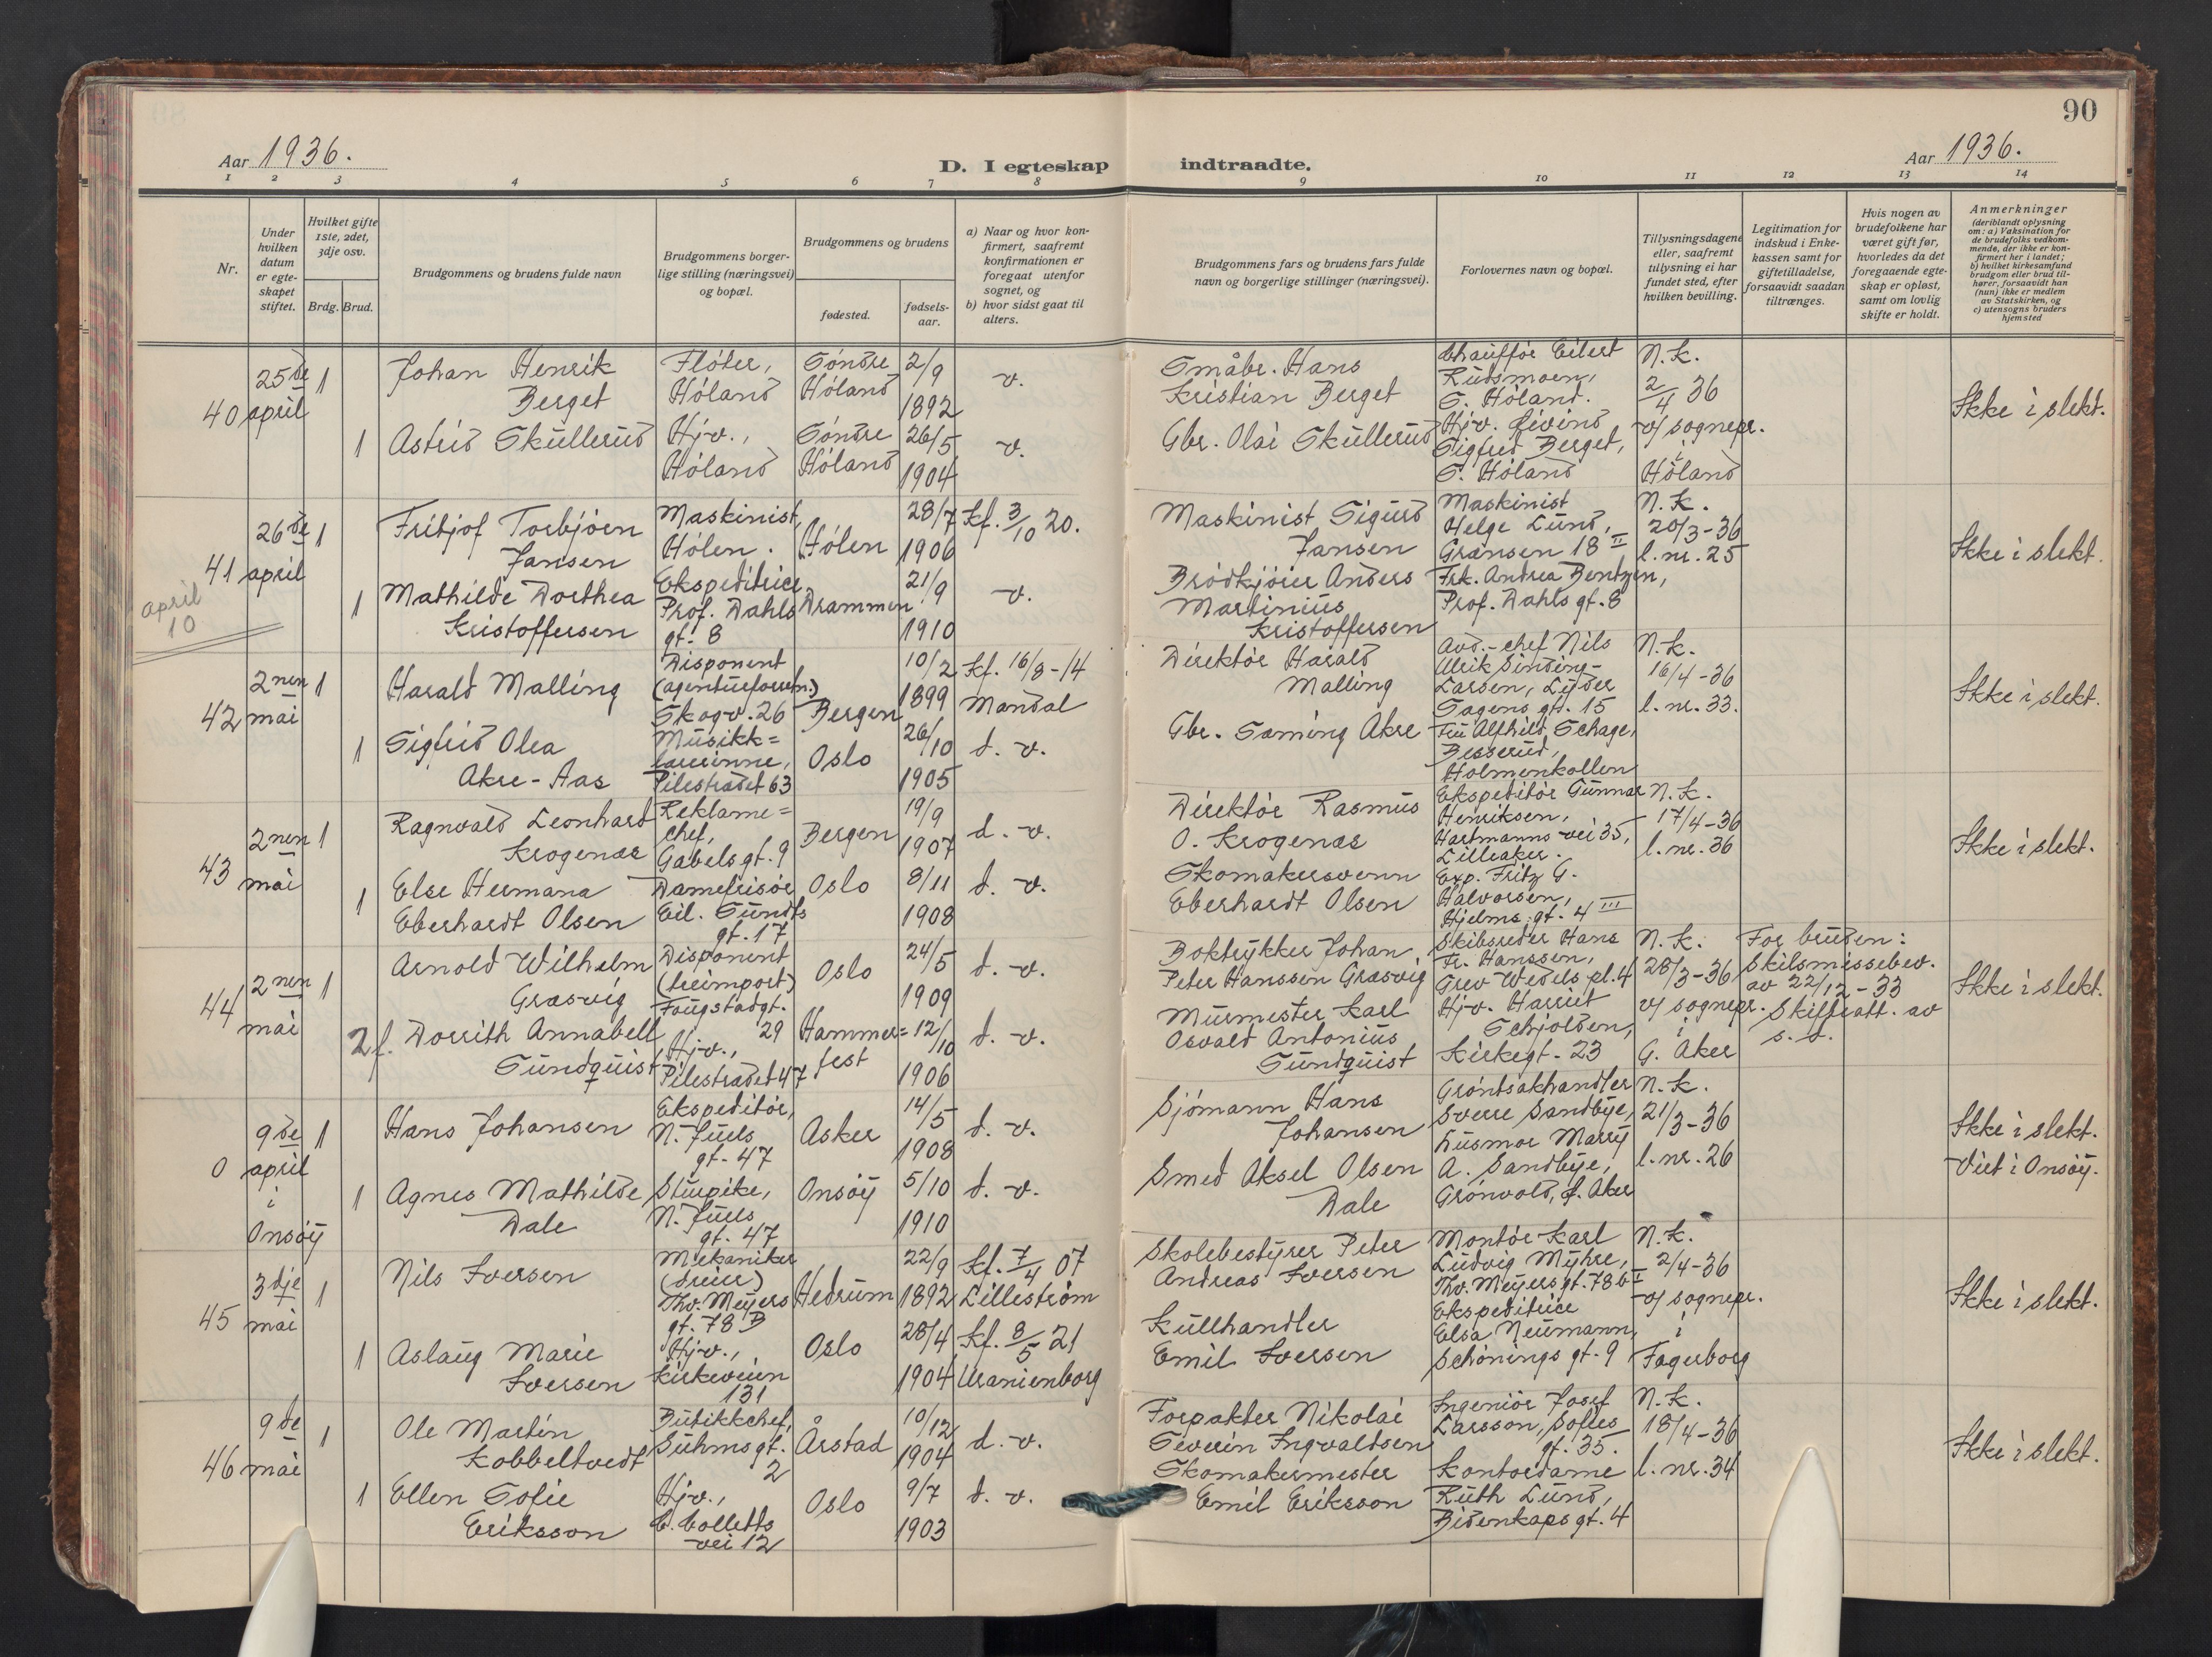 90
Aar 1936.
D. I egteskap indtraadte.
Aar 1936.
1 2 3 4 5 6 7 8 9 10 11 12 13 14
Nr.
Under hvilken datum er egte-skapet stiftet.
Hvilket gifte 1ste, 2det, 3dje osv.
Brdg. Brud.
Brudgommens og brudens fulde navn
Brudgommens borger-
lige stilling (næringsvei)
og bopæl.
Brudgommens og brudens
fødested.
fødsels-
aar.
a) Naar og hvor kon-
firmert, saafremt
konfirmationen er
foregaat utenfor
sognet, og
b) hvor sidst gaat til
alters.
Brudgommens fars og brudens fars fulde
navn og borgerlige stillinger (næringsvei).
Forlovernes navn og bopæl.
Tillysningsdagene
eller, saafremt
tillysning ei har
fundet sted, efter
hvilken bevilling.
Legitimation for
indskud i Enke-
kassen samt for
giftetilladelse,
forsaavidt saadan
tiltrænges.
Hvis nogen av
brudefolkene har
været gift før,
hvorledes da det
foregaaende egte-
skap er opløst,
samt om lovlig
skifte er holdt.
Anmerkninger
(deriblandt oplysning
om: a) Vaksination for
de brudefolks vedkom-
mende, der ikke er kon-
firmert her i landet;
b) hvilket kirkesamfund
brudgom eller brud til-
hører, forsaavidt han
(hun) ikke er medlem
av Statskirken, og
c) utensogns bruders
hjemsted
40
25de
april
1
Johan Henrik
Berget
Fløter,
Høland
Søndre
Høland
2/9
1892
v.
Småbr. Hans
Kristian Berget
Chauffør Eilert
Rudsmoen,
S. Høland.
N.k.
2/4 36
v/ sognepr.
i
Høland
Ikke i slekt.
1
Astrid Skullerud
Hjv.,
Høland
Søndre
Høland
26/5
1904
v.
Gbr. Olai Skullerud
Hjv. Eivind
Sigfred Berget,
S. Høland
41
26de
april
1
Fritjof Torbjørn
Jansen
Maskinist,
Hølen.
Hølen
28/7
1906
Kf. 3/10 20.
Maskinist Sigurd
Jansen
Maskinist
Helge Lund,
Grensen 18 II
N.k.
20/3-36
l.nr. 25
Ikke i slekt.
april
10
1
Mathilde Dorthea
Kristoffersen
Ekspeditrice
Prof. Dahls
gt. 8
Drammen
21/9
1910
v.
Brødkjører Anders
Martinius
Kristoffersen
Frk. Andrea Bentzen,
Prof. Dahls gt. 8
42
2nen
mai
1
Harald Malling
Disponent
(agenturforretn.)
Skogv. 26
Bergen
10/2
1899
Kf. 16/3-14
Mandal
Direktør Harald
Malling
Avd.-chef Nils
Ulrik Sinding-
Larsen, Lyder
Sagens gt. 15
N.k.
16/4-36
l.nr. 33.
Ikke i slekt.
1
Sigfrid Olea
Akre-Aas
Musikk=
lærerinne,
Pilestredet 63
Oslo
26/10
1905
d. v.
Gbr. Sæming Akre
Fru Alfhild Schage,
Besserud,
Holmenkollen
43
2nen
mai
1
Ragnvald Leonhard
Krogenæs
Reklame=
chef,
Gabels gt. 9
Bergen
19/9
1907
d. v.
Direktør Rasmus
O. Krogenæs
Ekspeditør Gunnar
Henriksen,
Hartmanns vei 35,
Lilleaker.
N.k.
17/4-36
l.nr. 36
Ikke i slekt.
1
Else Hermana
Eberhardt Olsen
Damefrisør
Eil. Sundts
gt. 17
Oslo
8/11
1908
d. v.
Skomakersvenn
Eberhardt Olsen
Exp. Fritz G.
Halvorsen,
Hjelms gt. 4 III
44
2nen
mai
1
Arnold Wilhelm
Græsvig
Disponent
(treimport)
Fougstadgt.
29
Oslo
24/5
1909
d. v.
Boktrykker Johan
Peter Hanssen Græsvig
Skibsreder Hans
Fr. Hanssen,
Grev Wedels pl. 4
N.k.
28/3-36
v/ sognepr.
i
G. Aker
For bruden:
Skilsmissebev.
av 22/12-33
Skifteatt. av
s. d.
Ikke i slekt.
2 f.
Dorrith Annabell
Sundquist
Hjv.,
Pilestredet 47
Hammer=
fest
12/10
1906
d. v.
Murmester Karl
Osvald Antonius
Sundquist
Hjv. Harriet
Schjolden,
Kirkegt. 23
0
9de
april
i
Onsøy
1
Hans Johansen
Ekspeditør,
N. Juels
gt. 47
Asker
14/5
1908
d. v.
Sjømann Hans
Johansen
Grøntsakhandler
Sverre Sandbye,
Husmor Marry
A. Sandbye,
Grønvold, Ø. Aker
N.k.
21/3-36
l.nr. 26
Ikke i slekt.
Viet i Onsøy.
1
Agnes Mathilde
Dale
Stuepike,
N. Juels
gt. 47
Onsøy
5/10
1910
d. v.
Smed Aksel Olsen
Dale
45
3dje
mai
1
Nils Iversen
Mekaniker
(dreier)
Thv. Meyers
gt. 78 B
Hedrum
22/9
1892
Kf. 7/4 07
Lillestrøm
Skolebestyrer Peter
Andreas Iversen
Montør Karl
Ludvig Myhre,
Thv. Meyers gt. 78 b I
N.k.
2/4-36
v/ sognepr.
i
Fagerborg
Ikke i slekt.
1
Aslaug Marie
Iversen
Hjv.,
Kirkeveien
131
Oslo
28/4
1904
Kf. 8/5 21
Uranienborg
Kullhandler
Emil Iversen
Ekspeditrice
Elsa Neumann,
Schønings gt. 9
46
9de
mai
1
Ole Martin
Kobbeltvedt
Butikkchef,
Suhms gt.
2
Årstad
10/12
1904
d. v.
Forpakter Nikolai
Severin Ingvaldsen
Ingeniør Josef
Larsson, Sofies
gt. 35.
N.k.
18/4-36
l.nr. 34
Ikke i slekt.
1
Ellen Sofie
Eriksson
Hjv.,
C. Colletts
vei 12
Oslo
9/7
1903
d. v.
Skomakermester
Emil Eriksson
Kontordame
Ruth Lund,
Bidenkaps gt. 4